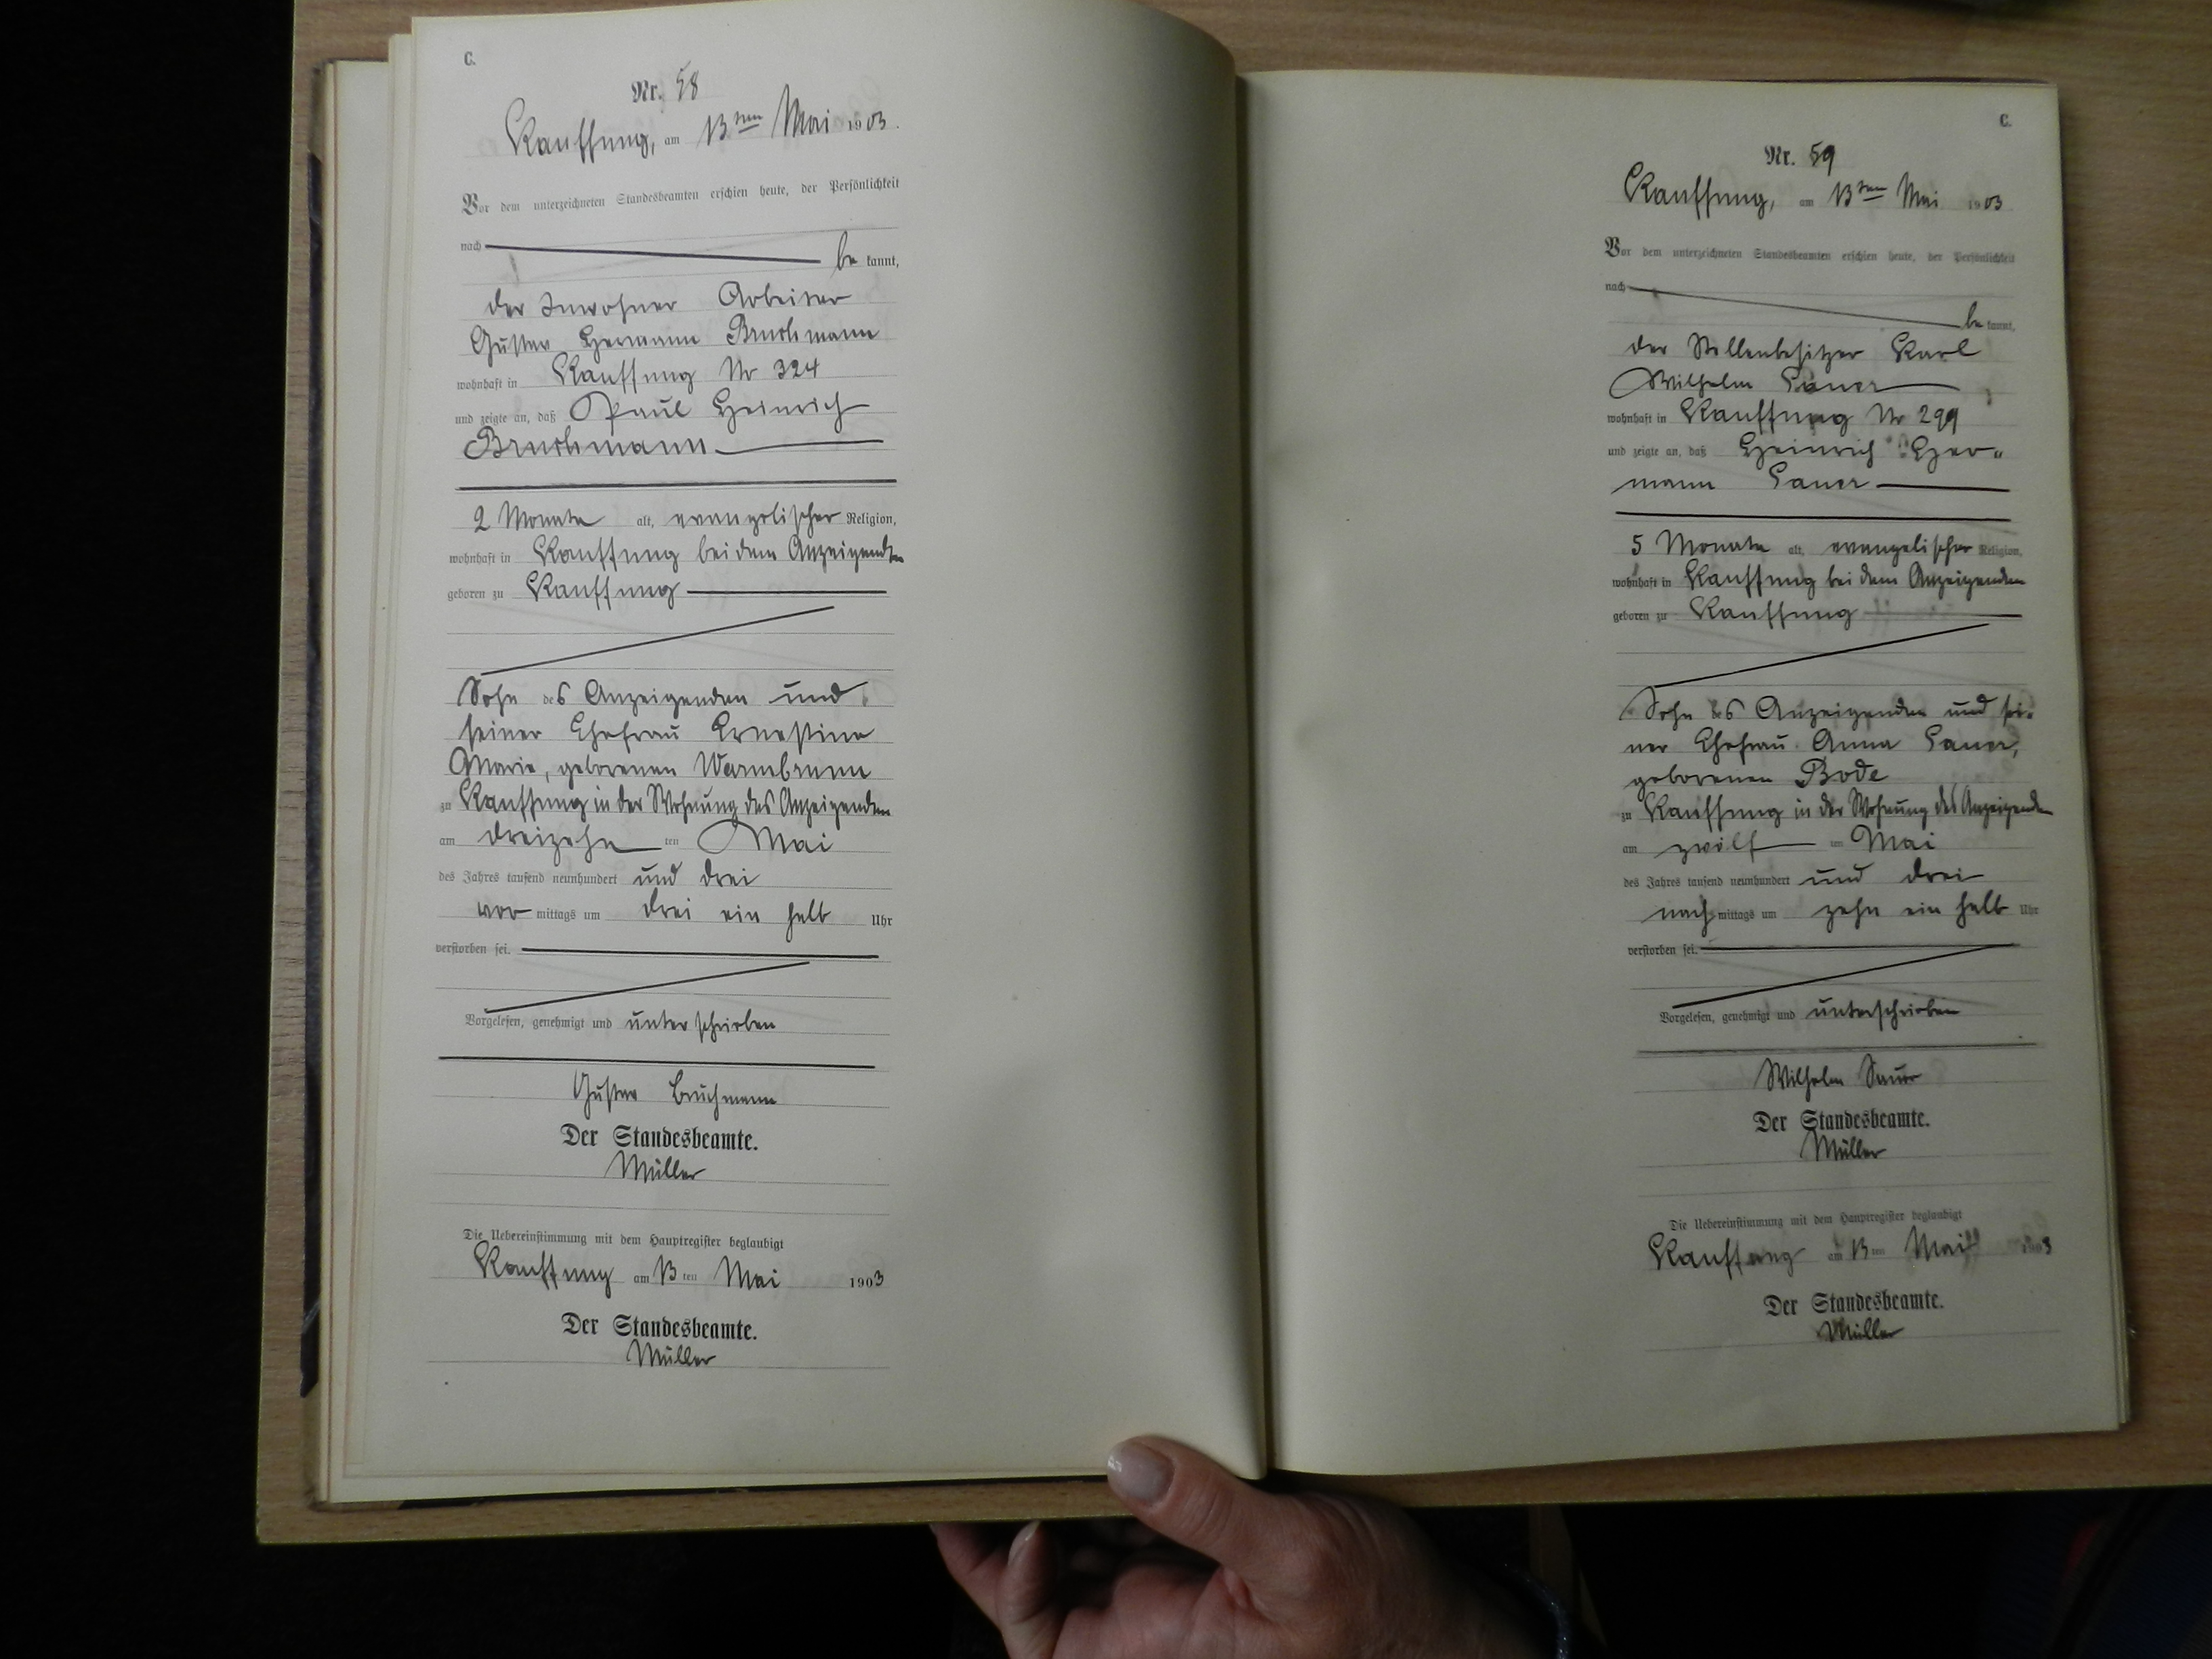 C.
Nr. 58
Kauffung, am 13ten Mai 1903.
Vor dem unterzeichneten Standesbeamten erschien heute, der Persönlichkeit
nach
be kannt,
der Inwohner Arbeiter
Gustav Hermann Bruchmann
wohnhaft in Kauffung Nr 324
und zeigte an, daß Paul Heinrich
Bruchmann
2 Monate alt, evangelischer Religion,
wohnhaft in Kauffung bei dem Anzeigenden
geboren zu Kauffung
Sohn des Anzeigenden und
seiner Ehefrau Ernestine
Marie, geborenen Warmbrunn
zu Kauffung in der Wohnung des Anzeigenden
am dreizehn ten Mai
des Jahres tausend neunhundert und drei
vor mittags um drei ein halb Uhr
verstorben sei.
Vorgelesen, genehmigt und unterschrieben
Gustav Bruchmann
Der Standesbeamte.
Müller
Die Uebereinstimmung mit dem Hauptregister beglaubigt
Kauffung am 13 ten Mai 1903
Der Standesbeamte.
Müller
C.
Nr. 59
Kauffung, am 13ten Mai 1903
Vor dem unterzeichneten Standesbeamten erschien heute, der Persönlichkeit
nach
be kannt,
der Stellenbesitzer Karl
Wilhelm Sauer
wohnhaft in Kauffung Nr 299
und zeigte an, daß Heinrich Her-
mann Sauer
5 Monate alt, evangelischer Religion,
wohnhaft in Kauffung bei dem Anzeigenden
geboren zu Kauffung
Sohn des Anzeigenden und sei-
ner Ehefrau Anna Sauer,
geborenen Bode
zu Kauffung in der Wohnung des Anzeigenden
am zwölf ten Mai
des Jahres tausend neunhundert und drei
nach mittags um zehn ein halb Uhr
verstorben sei.
Vorgelesen, genehmigt und unterschrieben
Wilhelm Sauer
Der Standesbeamte.
Müller
Die Uebereinstimmung mit dem Hauptregister beglaubigt
Kauffung am 13 ten Mai 1903
Der Standesbeamte.
Müller